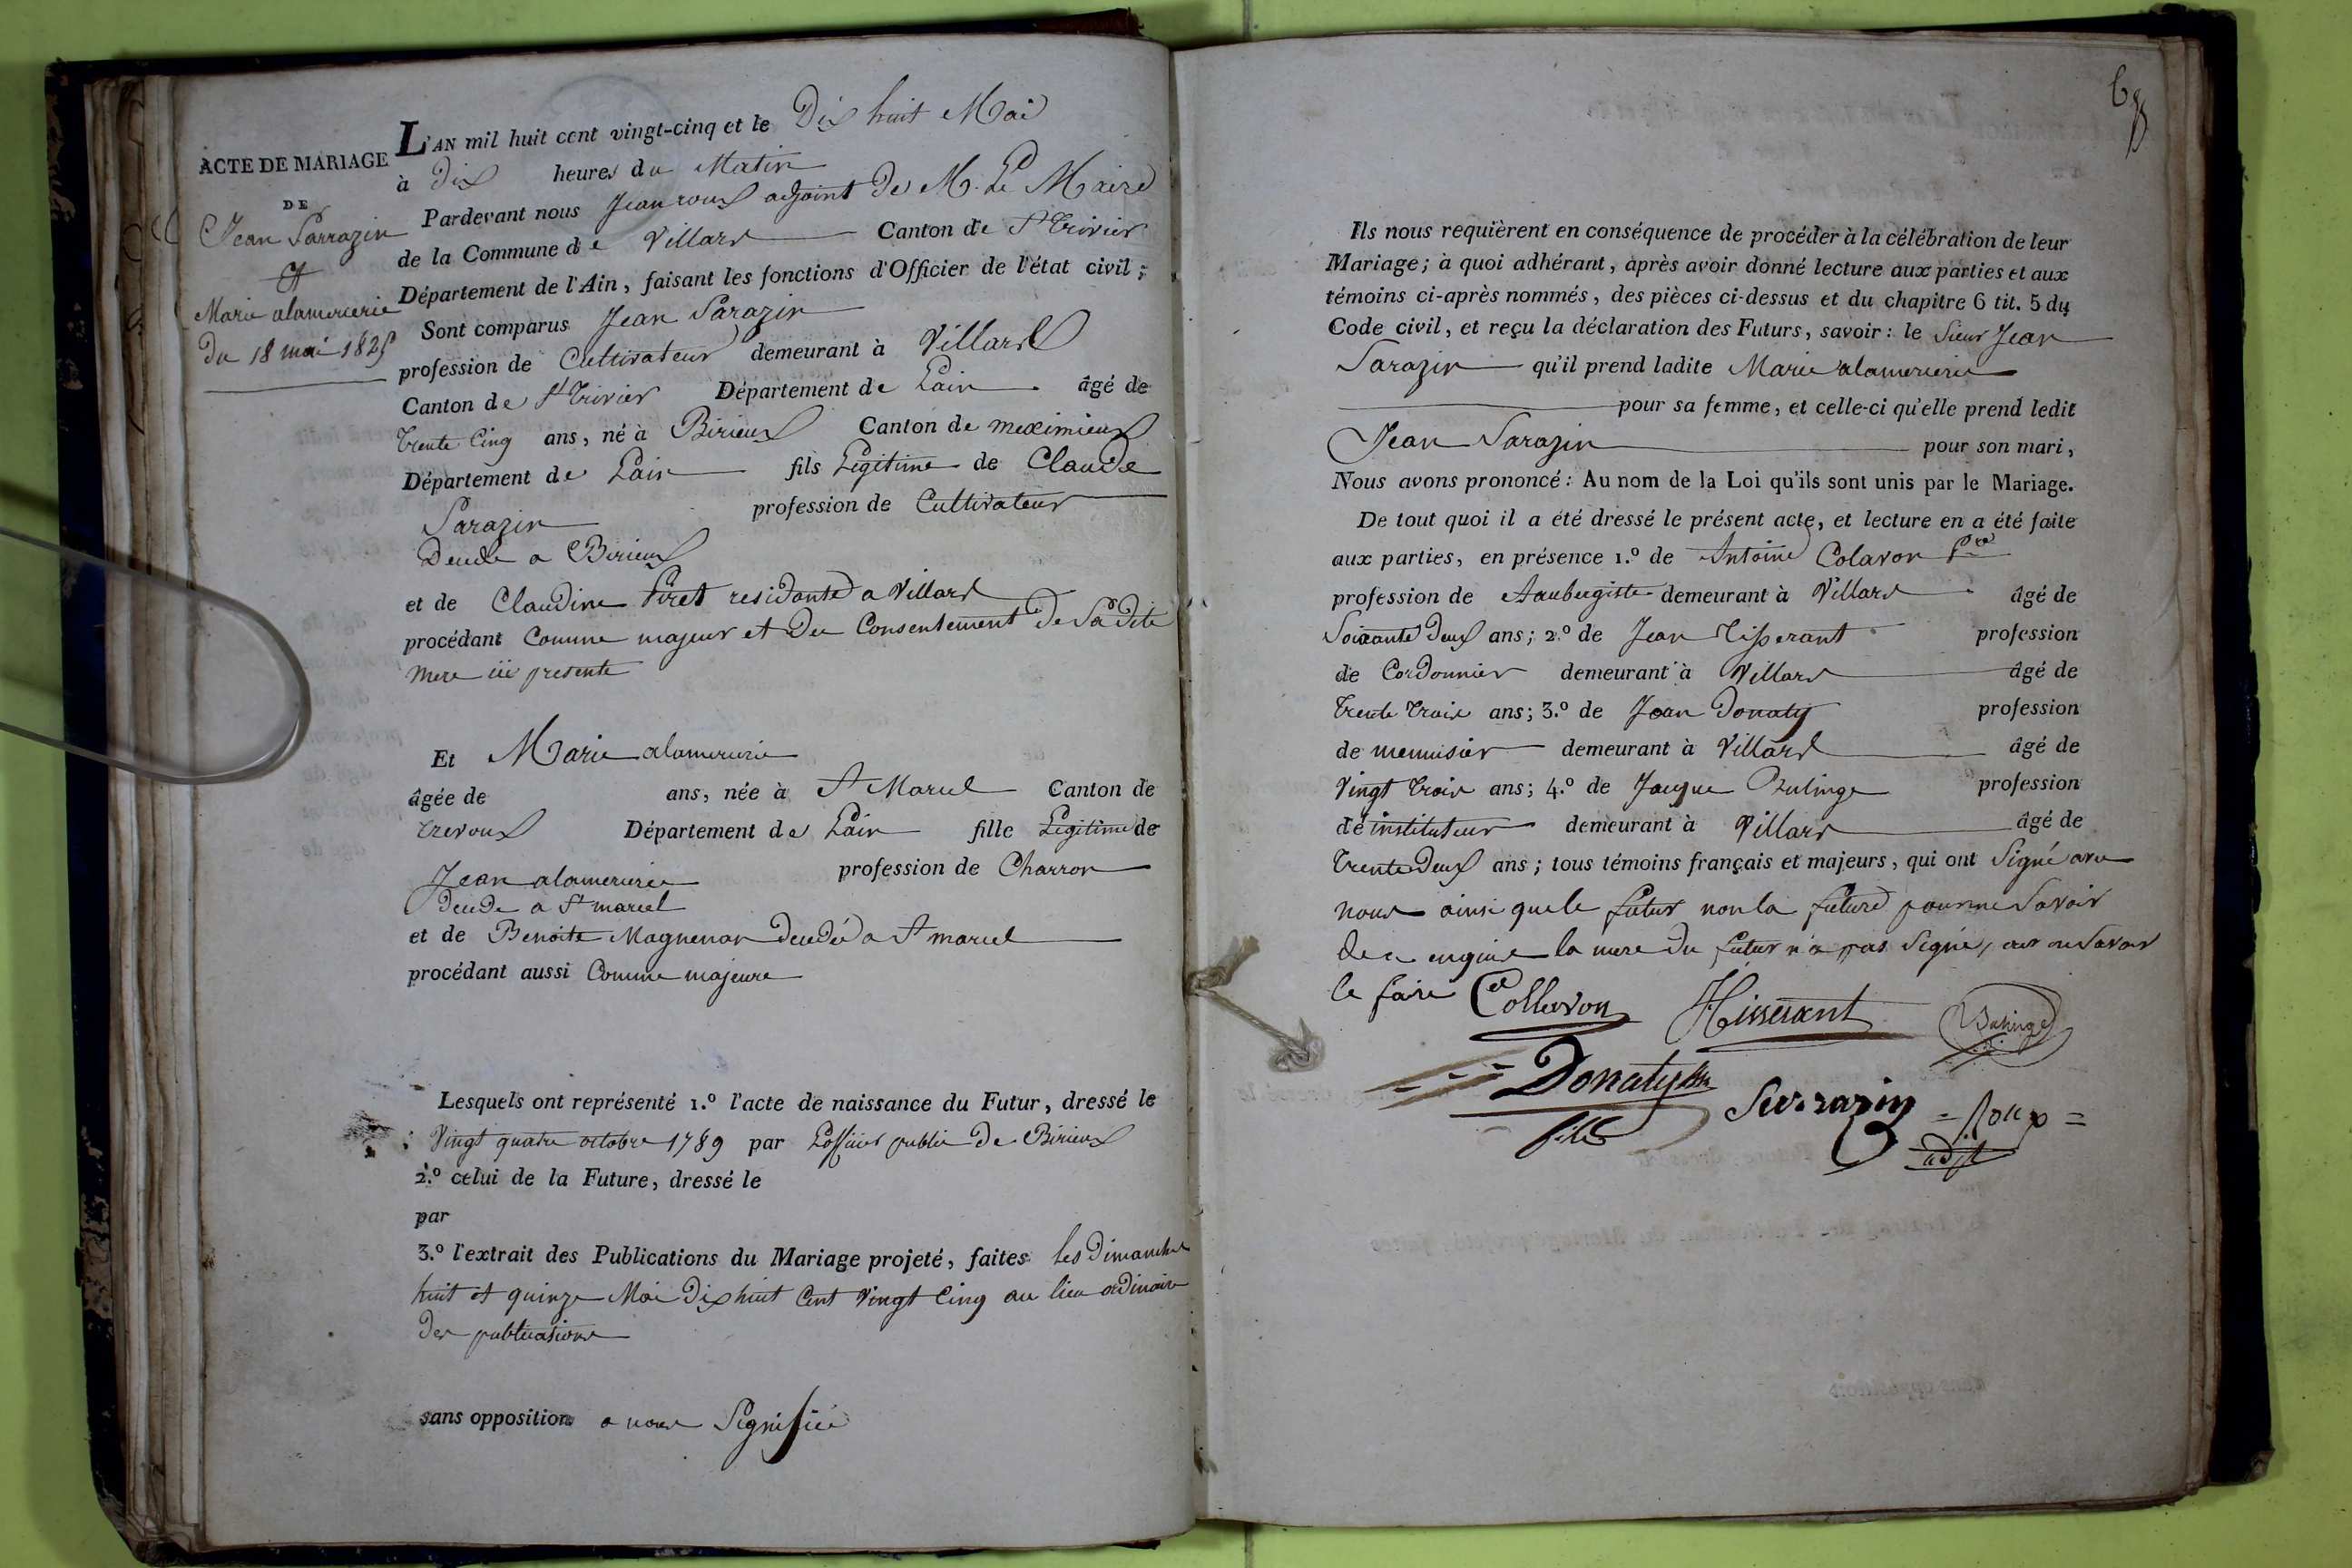 ACTE DE MARIAGE
DE
Jean Sarrazin
Et
Marie alamercerie
du 18 mai 1825
L'AN mil huit cent vingt-cinq et le Dix huit Mai
à Dix heures du Matin
Pardevant nous Jean roux adjoint De M. Le Maire
de la Commune de Villars Canton de St Trivier
Département de l'Ain, faisant les fonctions d'Officier de l'état civil;
Sont comparus Jean Sarazin
profession de Cultivateur demeurant à Villars
Canton de St Trivier Département de Lain âgé de
trente Cinq ans, né à Birieux Canton de meximieux
Département de Lain fils Légitime de Claude
Sarazin profession de Cultivateur
Decede a Birieux
et de Claudine Piret residante a Villars
procédant Comme majeur et Du Consentement De Sadite
mere ici presente
Et Marie alamercerie
âgée de ans, née à St Marcel Canton de
trevoux Département de Lain fille Légitime de
Jean alamercerie profession de Charron
decede a St marcel
et de Benoite Magnenan decedée a St marcel
procédant aussi Comme majeure
Lesquels ont représenté 1.º l'acte de naissance du Futur, dressé le
Vingt quatre octobre 1789 par Lofficier public De Birieux
2.º celui de la Future, dressé le
par
3.º l'extrait des Publications du Mariage projeté, faites les Dimanches
huit et quinze Mai Dix huit Cent Vingt Cinq au lieu ordinaire
Des publications
sans opposition a nous Signifiée
Ils nous requièrent en conséquence de procéder à la célébration de leur
Mariage; à quoi adhérant, après avoir donné lecture aux parties et aux
témoins ci-après nommés, des pièces ci-dessus et du chapitre 6 tit. 5 du
Code civil, et reçu la déclaration des Futurs, savoir: le Sieur Jean
Sarazin qu'il prend ladite Marie alamercerie
pour sa femme, et celle-ci qu'elle prend ledit
Jean Sarazin pour son mari,
Nous avons prononcé: Au nom de la Loi qu'ils sont unis par le Mariage.
De tout quoi il a été dressé le présent acte, et lecture en a été faite
aux parties, en présence 1.º de Antoine Colavon
profession de Aaubergiste demeurant à Villars âgé de
Soixante Deux ans; 2.º de Jean Tisserant profession
de Cordonnier demeurant à Villars âgé de
trente trois ans; 3.º de Jean Donaty profession
de menuisier demeurant à Villars âgé de
Vingt trois ans; 4.º de Jacque Bulinge profession
de instituteur demeurant à Villars âgé de
trente Deux ans; tous témoins français et majeurs, qui ont Signé avec
nous ainsi que le futur non la future pour ne Savoir
de ce enquise la mere Du futur n'a pas Signé, ne Savoir
le faire Collavon JTisserant Bulinge
Donaty
fils Sarrazin = Roux =
adjt